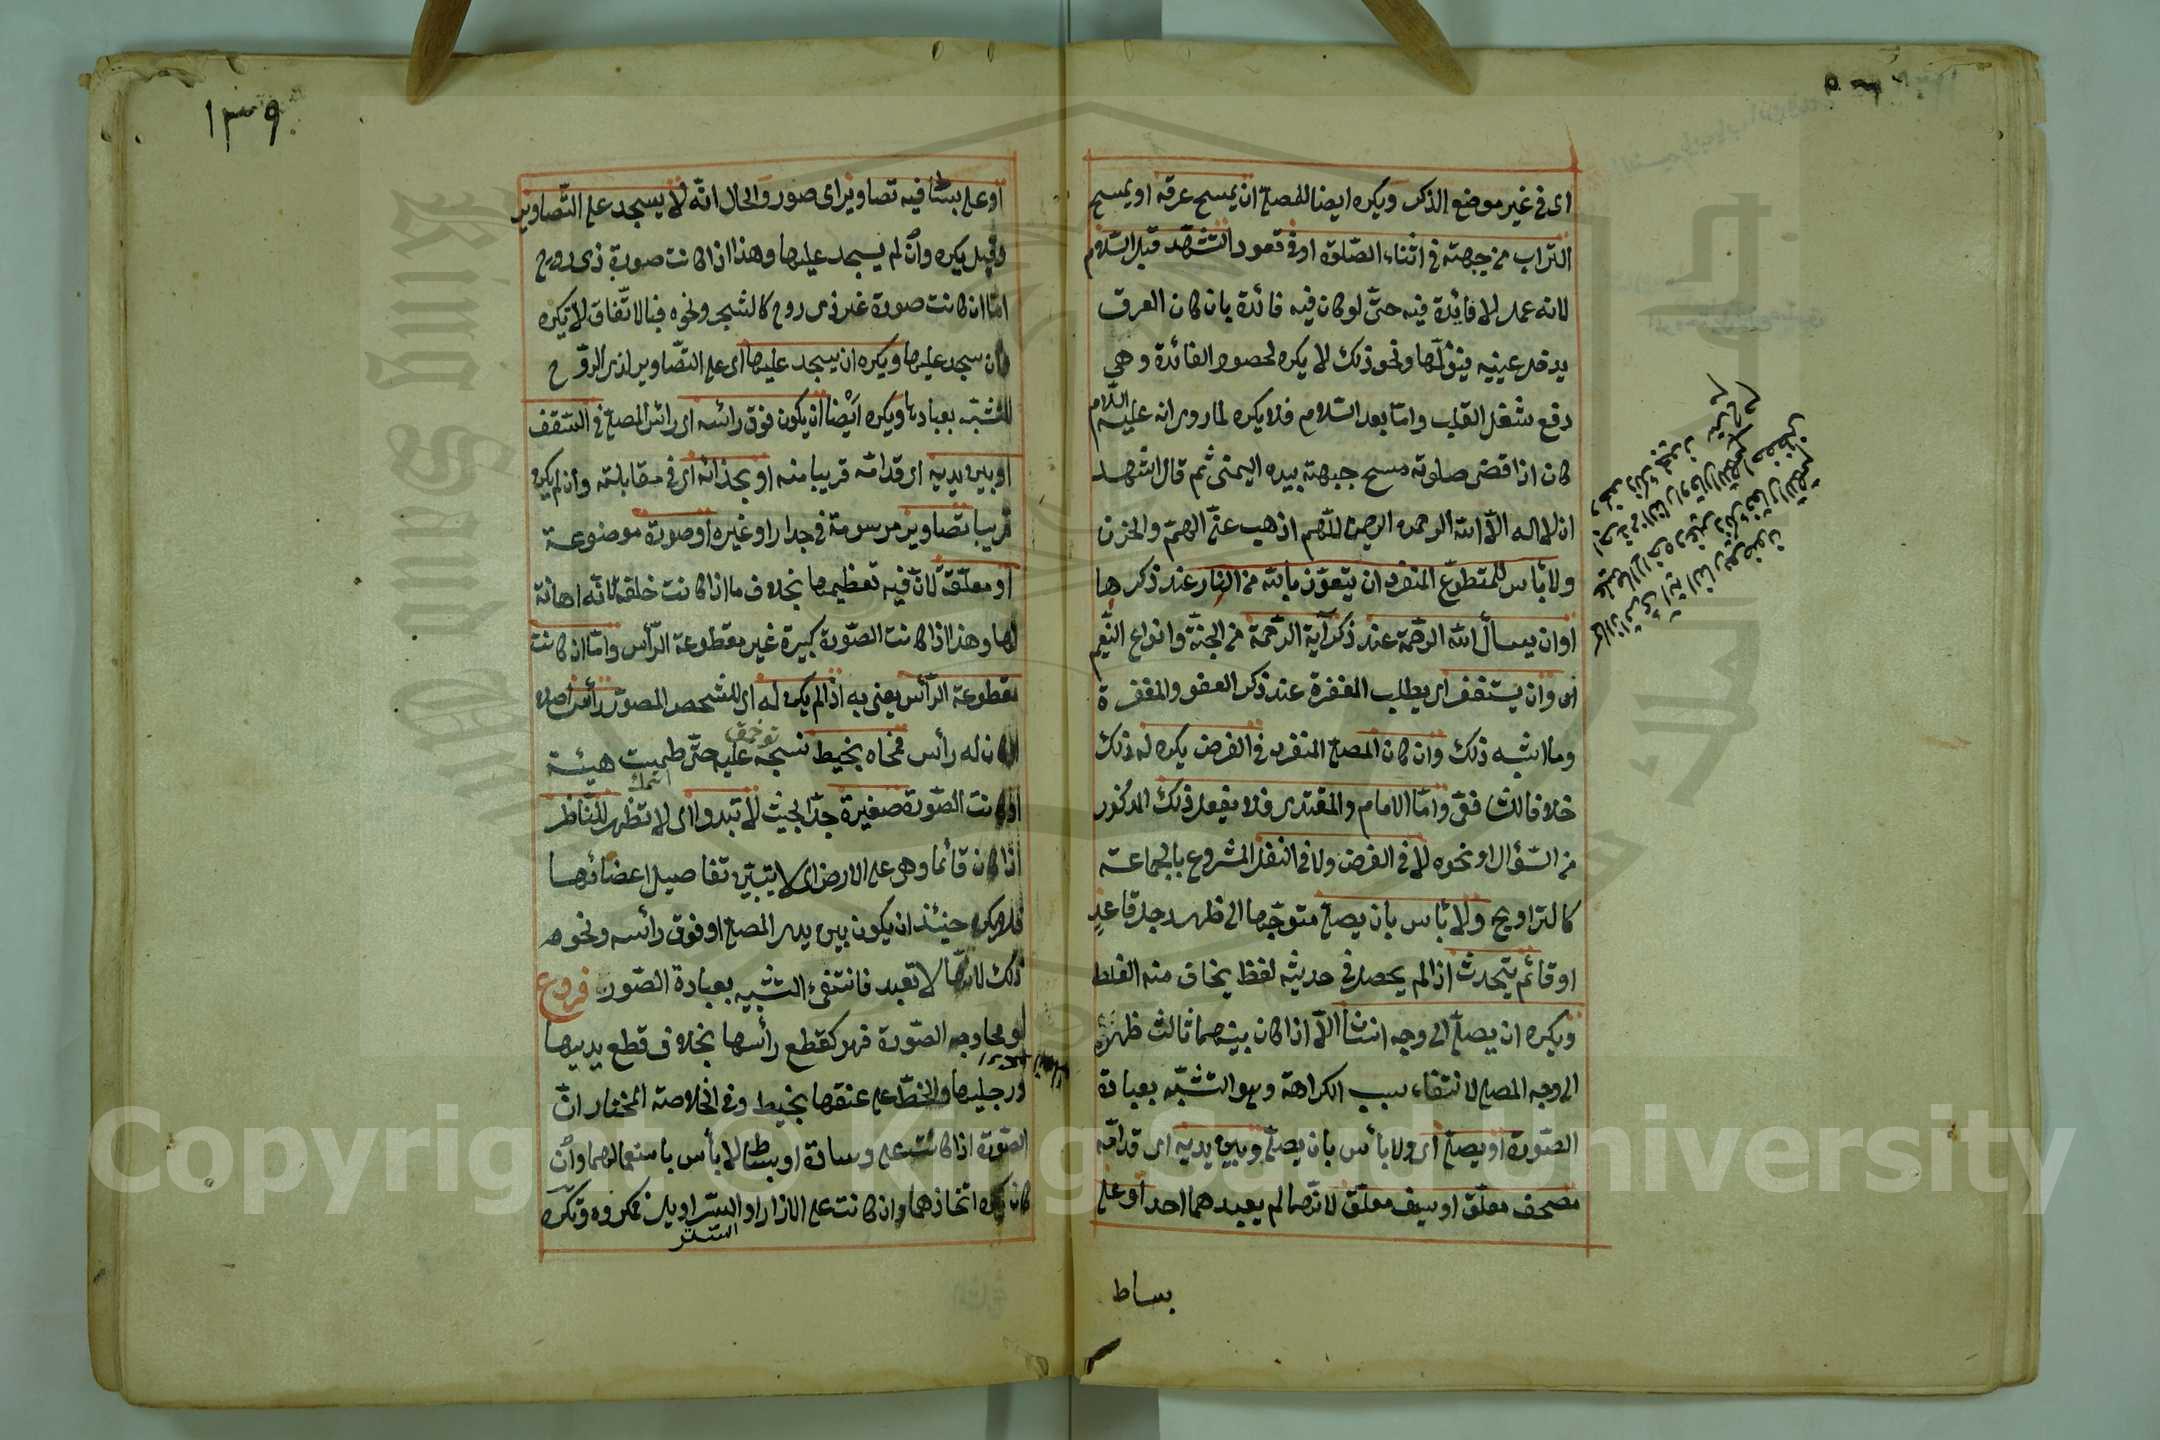 اى فى غير موضع الذكر ويكره ايضا للمصلى ان يمسح عرقه او يمسح
التراب من جبهته فى اثناء الصلوة او فى قعود التشهد قبل السلام
لانه عمل لا فائدة فيه حتى لو كان فيه فائدة بان كان العرق
يدخل عينيه فيؤلمها ونحو ذلك لا يكره لحصول الفائدة وهى
دفع شغل القلب واما بعد السلام فلا يكره لما روى انه عليه السلام
كان اذا قضى صلوته مسح جبهته بيده اليمنى ثم قال اشهد
ان لا اله الا الله الرحمن الرحيم اللهم اذهب عنى الهم والحزن
ولا بأس للمتطوع المنفرد ان يتعوذ بالله من النار عند ذكرها
او ان يسأل الله الرحمة عند ذكر آية الرحمة من الجنة وانواع النعيم
او ان يستغفر اى يطلب المغفرة عند ذكر العفو والمغفرة
وما اشبه ذلك وان كان المصلى المنفرد فى الفرض يكره له ذلك
خلافا للشافعى واما الامام والمقتدى فلا يفعل ذلك المذكور
من السؤال ونحوه لا فى الفرض ولا فى النفل المشروع بالجماعة
كالتراويح ولا بأس بان يصلى متوجها الى ظهر رجل قاعد
او قائم يتحدث اذا لم يحصل فى حديثه لغط يخاف منه الغلط
ويكره ان يصلى الى وجه انسان الا اذا كان بينهما ثالث ظهره
الى وجه المصلى لانتفاء سبب الكراهة وهو التشبه بعبادة
الصورة او يصلى اى ولا بأس بان يصلى وبين يديه اى قدامه
مصحف معلق او سيف معلق لانهما لم يعبدهما احد او على
بساط
١٣٩
او على بساط فيه تصاوير اى صور والحال انه لا يسجد على التصاوير
وقيل يكره وان لم يسجد عليها وهذا اذا كانت صورة ذى روح
اما ان كانت صورة غير ذى روح كالشجر ونحوه فبالاتفاق لا يكره
وان سجد عليها ويكره ان يسجد عليها اى على التصاوير لذى الروح
للتشبه بعبادتها ويكره ايضا ان يكون فوق رأسه اى رأس المصلى فى السقف
او بين يديه اى قدامه قريبا منه او بحذائه اى فى مقابلته وان لم يكن
قريبا تصاوير مرسومة فى جدار او غيره او صورة موضوعة
او معلقة لان فيه تعظيمها بخلاف ما اذا كانت خلفه لانه اهانة
لها وهذا اذا كانت الصورة كبيرة غير مقطوعة الرأس واما ان كانت
مقطوعة الرأس يعنى به اذا لم يكن له اى للشخص المصور رأس اصلا
او كان له رأس فمحاه بخيط نسجه عليه حتى طمست هيئة
او كانت الصورة صغيرة جدا بحيث لا تبدو اى لا تظهر للناظر
اذا كان قائما وهى على الارض اى لا يتبين تفاصيل اعضائها
فلا يكره حينئذ ان يكون بين يدى المصلى او فوق رأسه ونحو
ذلك لانها لا تعبد فانتفى التشبيه بعبادة الصور فروع
لو محا وجه الصورة فهو كقطع رأسها بخلاف قطع يديها
ورجليها والخط على عنقها بخيط وفى الخلاصة المختار ان
الصورة اذا كانت على وسادة او بساط لا بأس باستعمالهما وان
كان يكره اتخاذهما وان كانت على الازار او الستر او يلن فمكروه وتكره
الستر